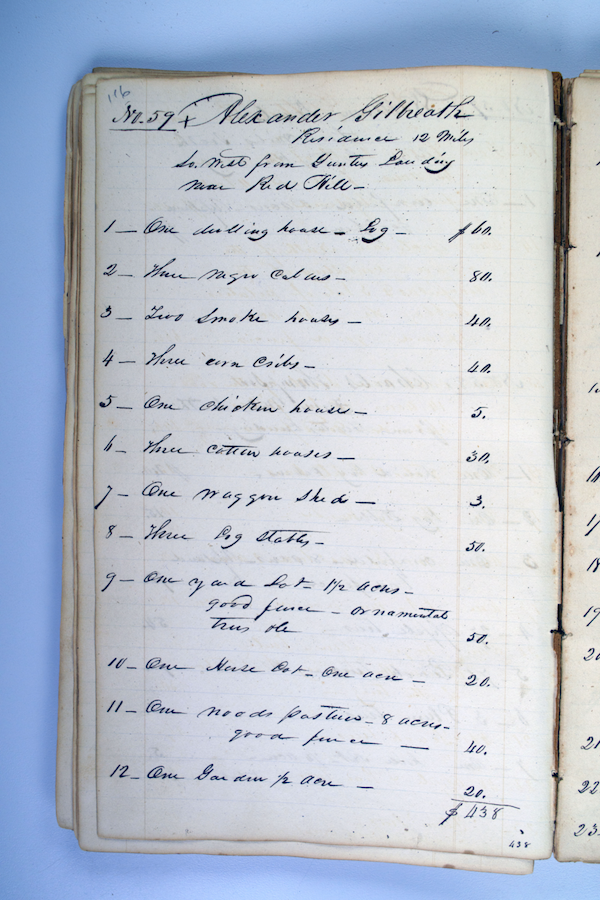 116
No. 59 + Alexander Gilbreath
Residence 12 Miles
So. West from Gunters Landing
near Red Hill -
1 - One dwelling house - Log - $60.
2 - Three negro Cabins - 80.
3 - Two Smoke houses - 40.
4 - Three corn Cribs - 40.
5 - One chicken house - 5.
6 - Three cotton houses - 30.
7 - One Waggon Shed - 3.
8 - Three Log Stables - 50.
9 - One yard Lot - 1 1/2 acres -
good fence - ornamental
trees &c 50.
10 - One Horse Lot - One acre - 20.
11 - One woods pasture - 8 acres -
good fence - 40.
12 - One Garden 1/2 acre - 20.
$438
438
1
1
17
18
19
20
21
22
23